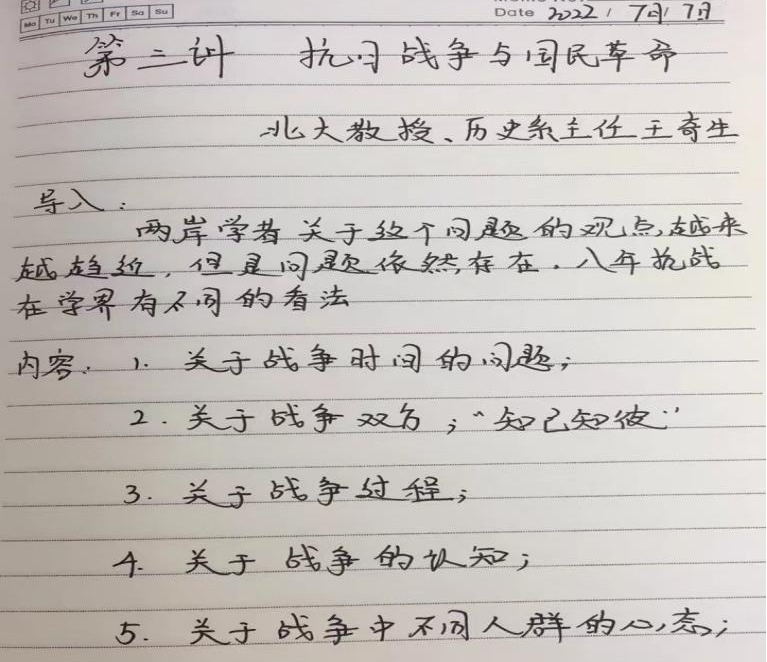 Mo Tu We Th Fr Sa Su
Date 2022 / 7月 / 7日
第三讲 抗日战争与国民革命
北大教授、历史系主任王奇生
导入：
两岸学者关于这个问题的观点,越来
越趋近，但是问题依然存在．八年抗战
在学界有不同的看法
内容：1. 关于战争时间的问题；
2. 关于战争双方；“知己知彼”
3. 关于战争过程；
4. 关于战争的认知；
5. 关于战争中不同人群的心态；